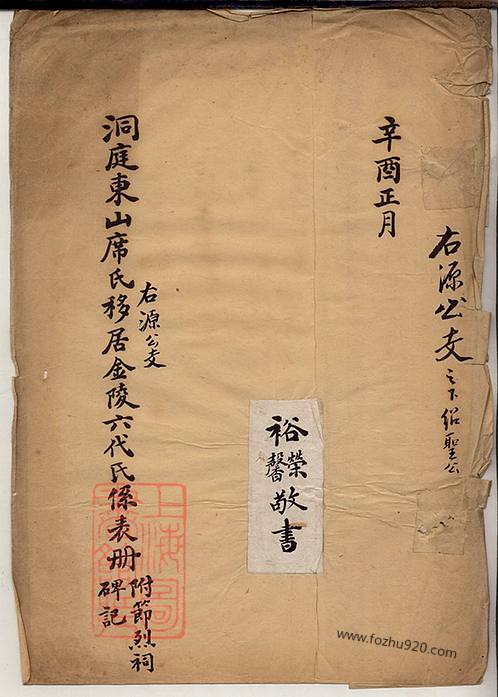 右源公支之下紹聖公
辛酉正月
裕榮馨敬書
右源公支
洞庭東山席氏移居金陵六代氏係表册附節烈祠碑記
上海圖
www.fozhu920.com